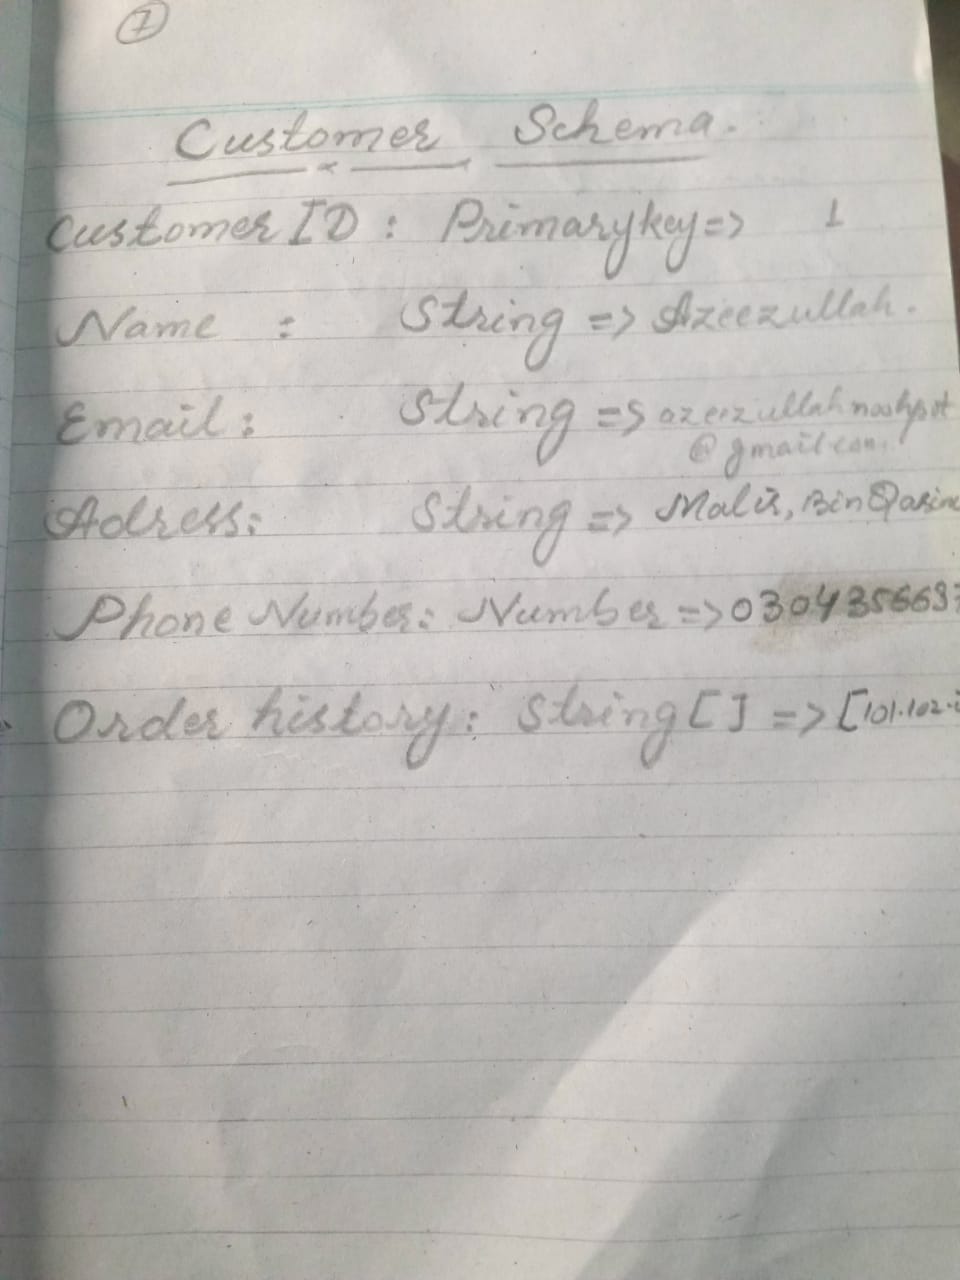 1
Customer Schema.
Customer ID : Primary key => 1
Name : String => Azeezullah.
Email : String =>
@gmail.com
Adress: String => Malir, Bin Qasim
Phone Number: Number => 0304356697
Order history: String [] => [101.102.